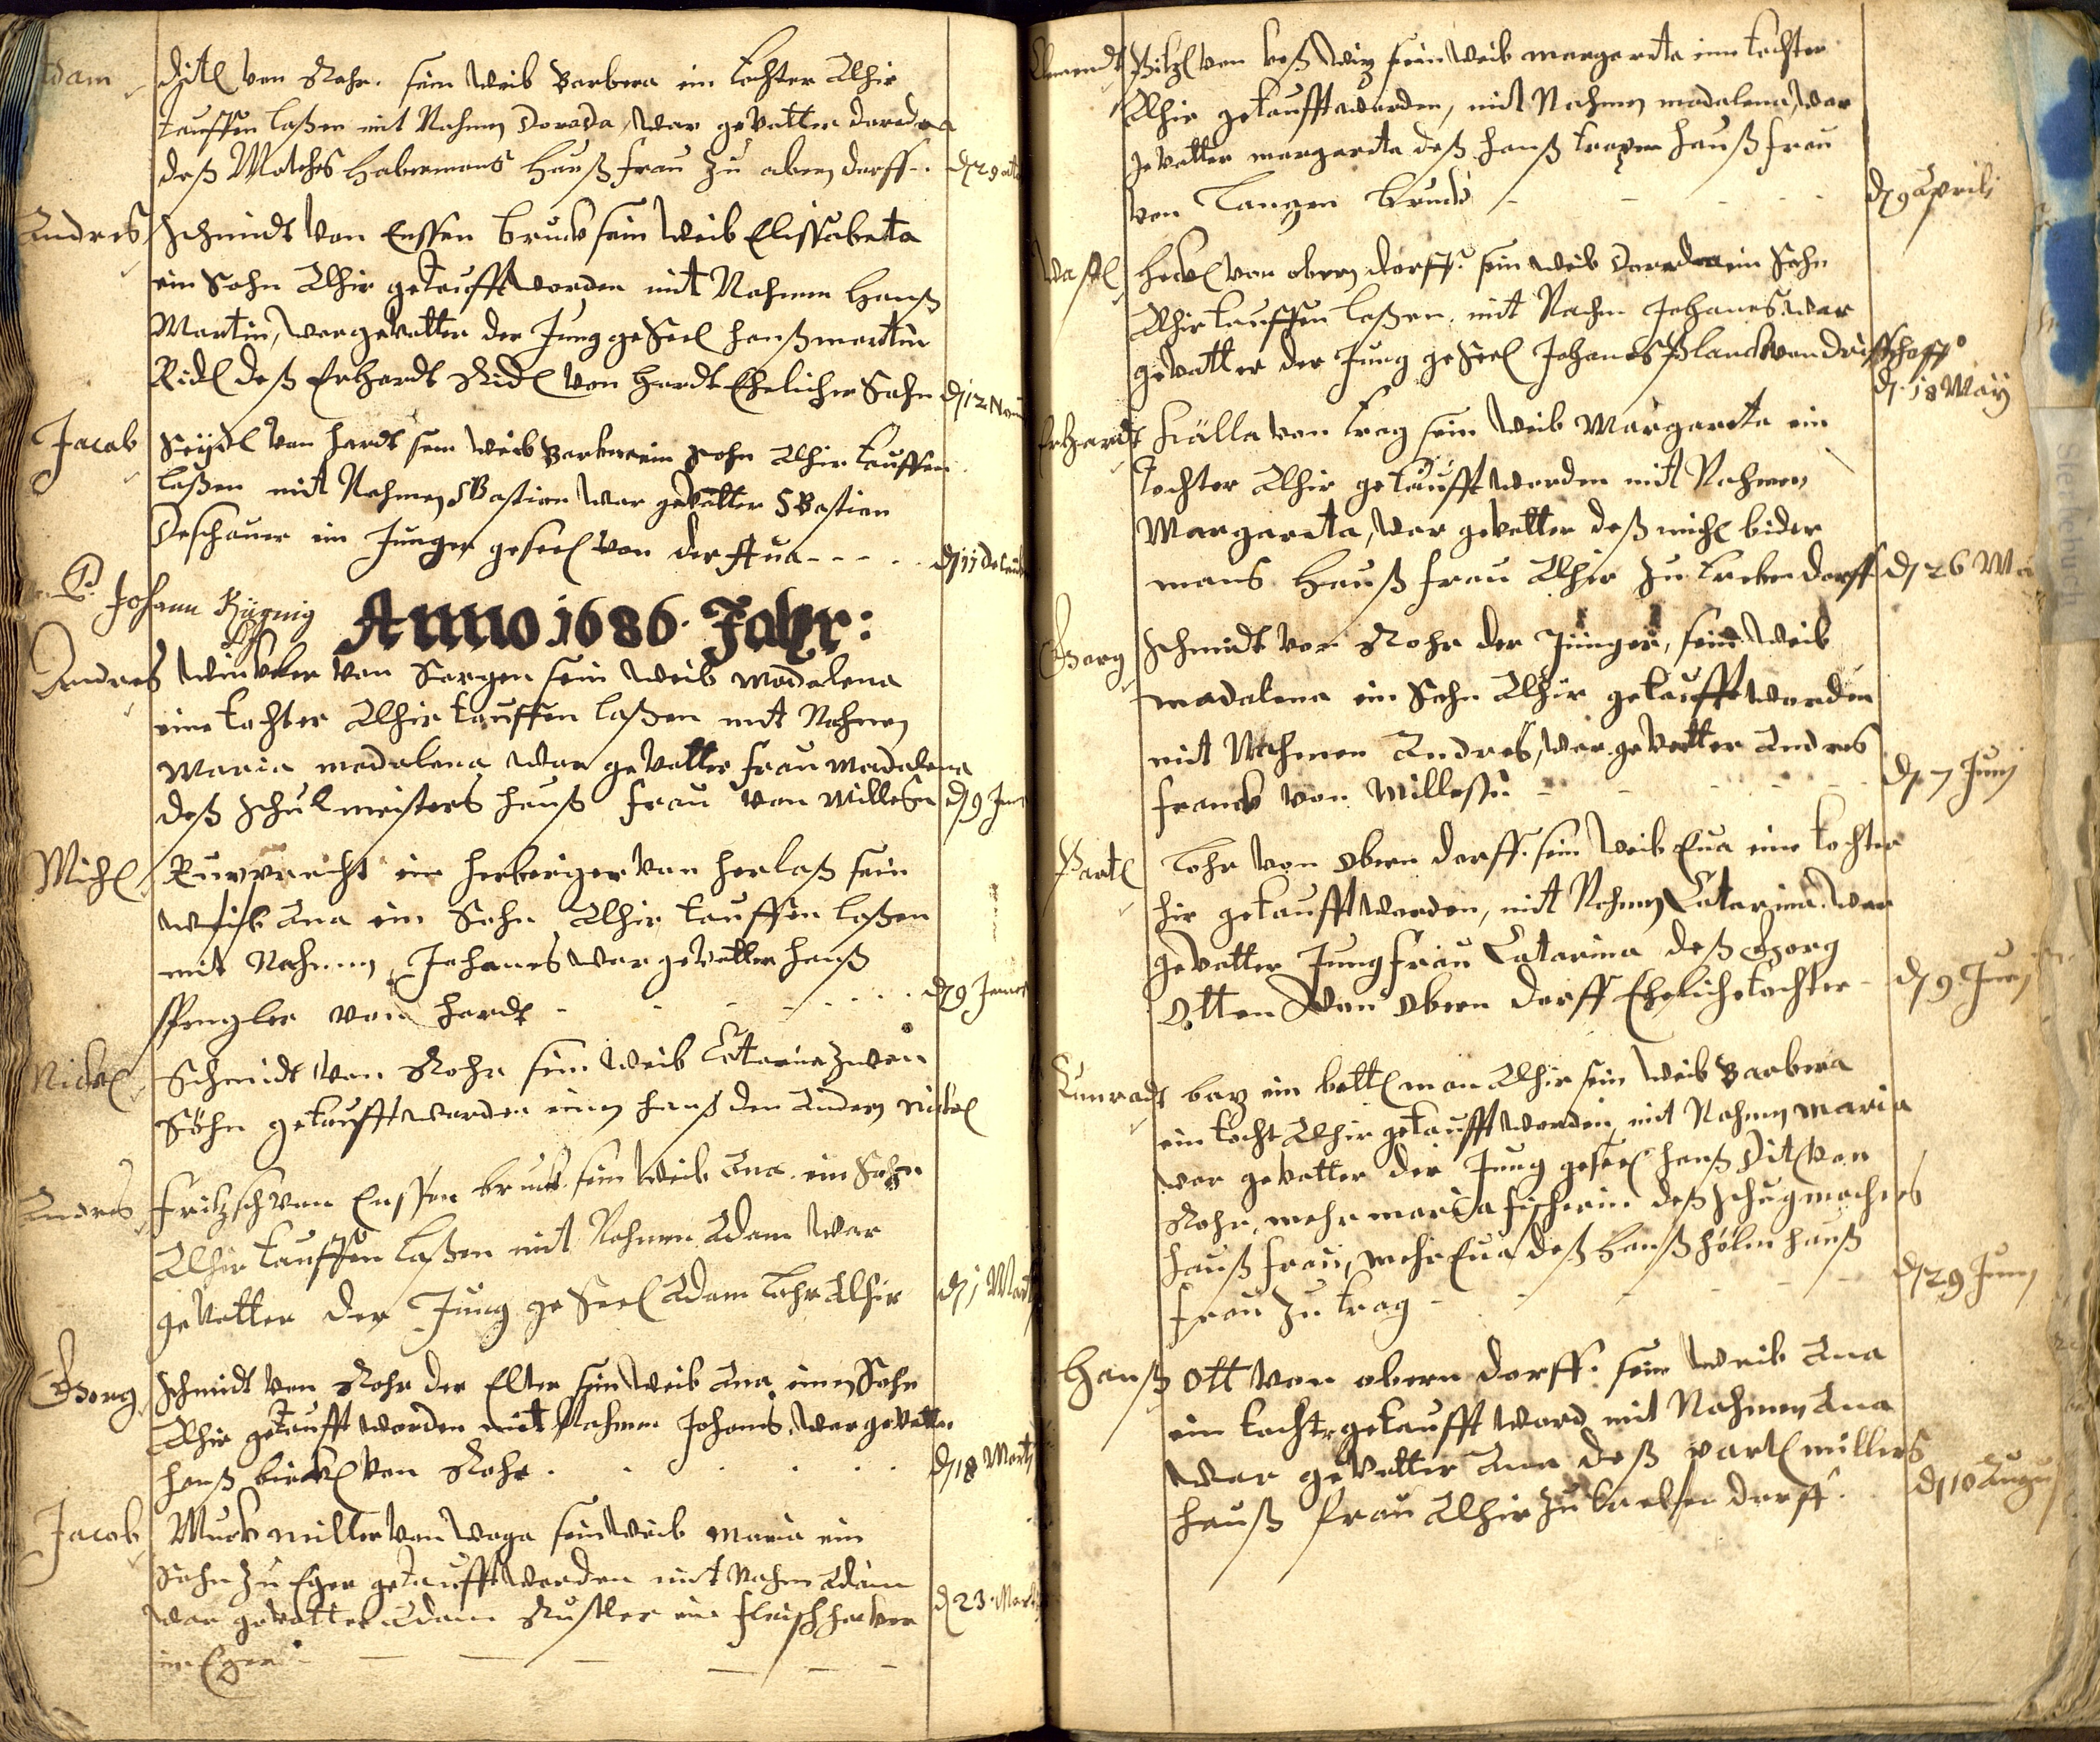 Adam Ditl von Rohr. sein Weib Barbera ein tochter Alhir
tauffen laßen mit Nahmen Doroda, war gevatter dorodea
deß Matthes Habermans Hauß frau zu obern dorff. d 29 octo
Andres Schmidt von Enssen bruck sein Weib Elissabeta
ein Sohn Alhir getaufft worden mit Nahmen Hanß
Martin, war gevatter der Jung geseel hanß martin
Ridl deß Erhardt Ridl von Hardt Ehelicher Sohn d 12 Nov
Jacob Seydl von hardt sein Weib Barbera ein sohn Alhir tauffen
laßen mit Nahmen SBastian war gevatter SBastian
Deschauer ein Junger geseel von der - - - d 11 Decemb
P. Johann
Anno 1686. Jahr:
Andres Winkler von Sorgen sein Weib madalena
eine tochter Alhir tauffen laßen mit Nahmen
Maria madalena war gevatter frau madalena
deß schulmeisters hauß frau von Millesn d 9 Jan
Michl Rupprecht ein herberiger von horlaß sein
Weib Ana ein Sohn Alhir tauffen laßen
mit Nahmen Johanes war gevatter hanß
Spengler von hardt - - - d 9 Januar
Nickl Schmidt von Rohr sein Weib Catarina zwen
Söhn getaufft worden einen hanß den Andern Nickel
Andres Fritzsch von Enssen bruck sein Weib Ana ein Sohn
Alhir tauffen laßen mit Nahmen Adam war
gevatter der Jung geseel Adam Lohr Alhir d 1 Mart
Georg Schmidt von Rohr der Elter sein Weib Ana einen Sohn
Alhir getaufft worden mit Nahmen Johanes, war gevatter
hanß birckl von Rohr. d 18 Marti
Jacob Muck miller von Waga sein Weib maria ein
Sohn zu Eger getaufft worden mit Nahm Adam
war gevatter Adam Rustler ein fleischhacker d 23 Marti
in Eger
Pitzl von sein Weib margareta eine tochter
Alhir getaufft worden, mit Nahmen madalena, war
gevatter margareta deß hanß hauß frau
von Langen bruck - - - d 9 Aprili
Wastl heckl von obern dorff. sein Weib Dorodea ein Sohn
Alhir tauffen laßen, mit Nahm Johanes, war
gevatter der Jung geseel Johanes Planck von
d. 18 May
Erhardt von trag sein Weib Margareta ein
tochter Alhir getaufft worden mit Nahmen
Margareta, war gevatter deß michl bider
mans Hauß frau Alhir zu d 26 Ma
Georg Schmidt von Rohr der Jünger, sein Weib
madalena ein Sohn Alhir getaufft worden
mit Nahmen Andres, war gevatter Andres
franck von Millessn - - - d 7 Juni
Partl Lohr von Obern dorff. sein Weib Eua eine tochter
hir getaufft worden, mit Nahmen Catarina. war
gevatter Jungfrau Catarina deß Georg
Otten von Obern dorff Eheliche tochter - d 9 Juni
Cunradt bay ein bettl man Alhir sein Weib Barbera
ein tocht Alhir getaufft worden, mit Nahmen Maria
war gevatter der Jung geseel hanß Ditl von
Rohr, mehr maria fischerin deß schugmachers
hauß frau, mehr Eua deß Hanß hölm hauß
frau zu trag - - - d 29 Juni
Hanß Ott von obern dorff. sein Weib Ana
ein tochtr getaufft word mit Nahmen Ana
war gevatter Ana deß partl millers
hauß frau Alhir zu d 10 Augu